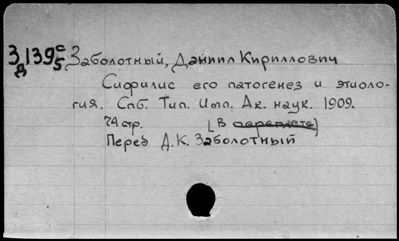 З 139 с/5 Заболотный, Даниил Кириллович
д
Сифилис его патогенез и этиоло-
гия. Спб. Тип. Имп. Ак. наук. 1909.
74 стр. [В переплете]
Перед Д.К. Заболотный